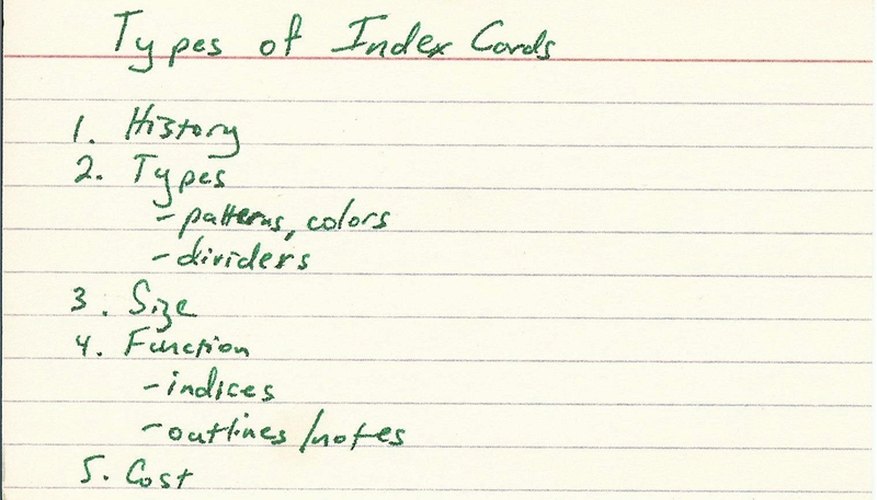 Types of Index Cards
1. History
2. Types
- patterns, colors
- dividers
3. Size
4. Function
- indices
- outlines/notes
5. Cost